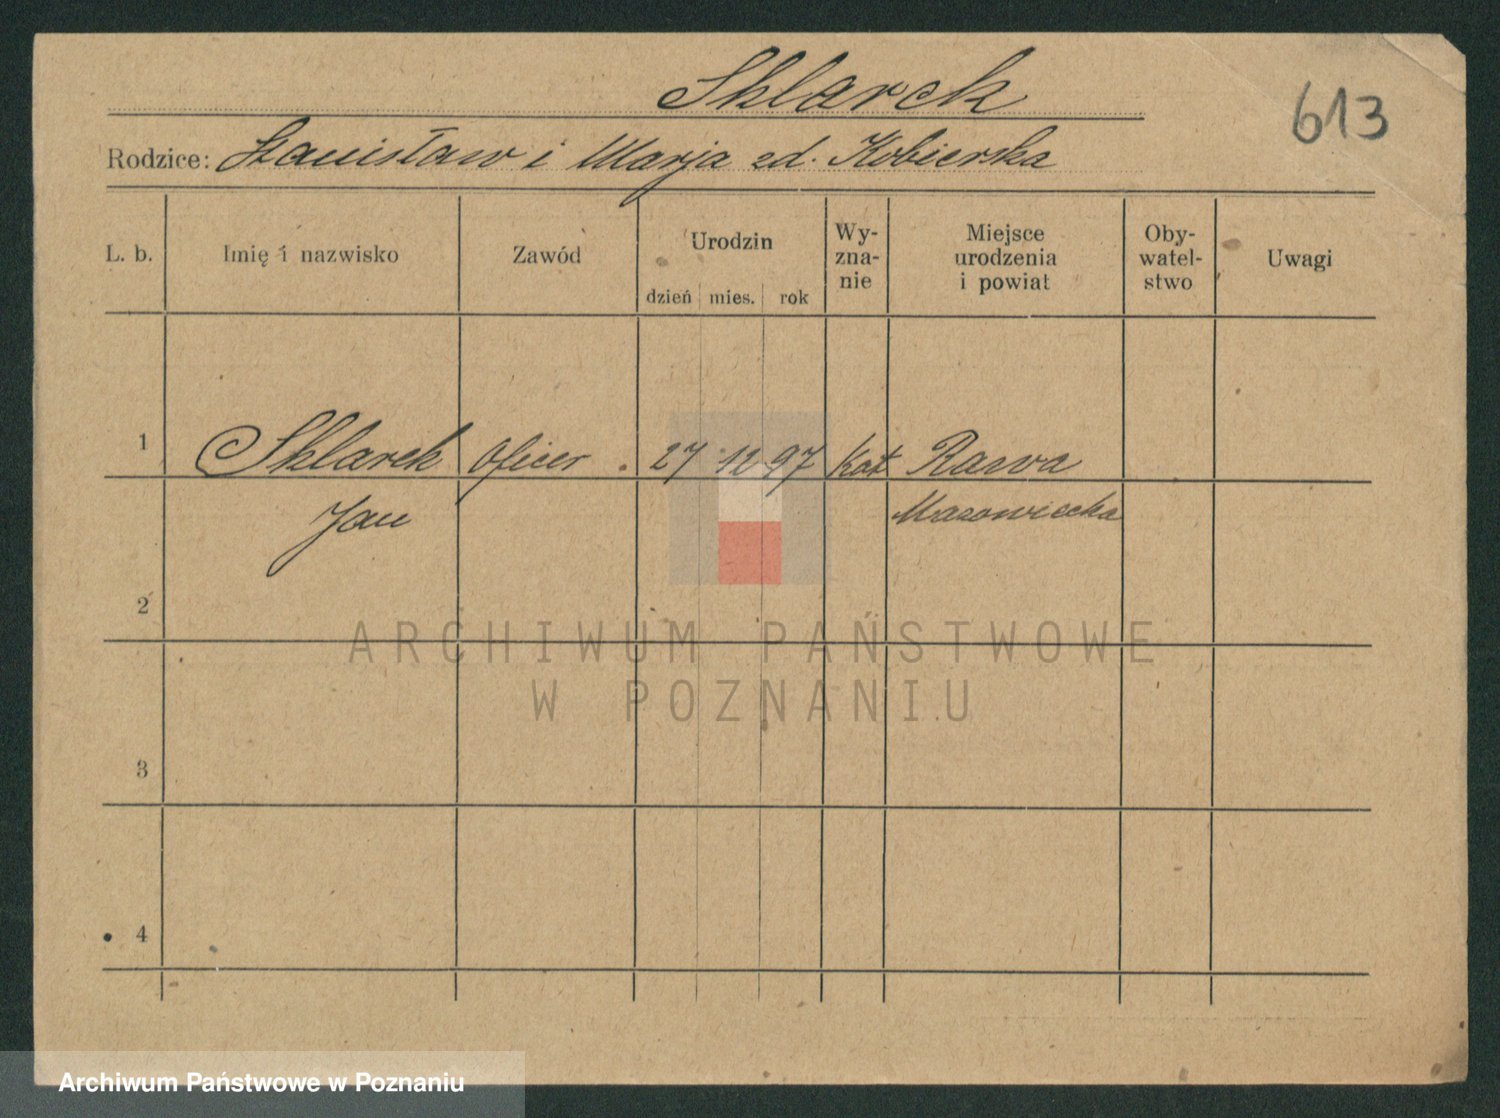 Sklarek
613
Rodzice: Stanisław i Marja zd. Kobierska
L. b. Imię i nazwisko Zawód Urodzin dzień mies. rok Wy-zna-nie Miejsce urodzenia i powiat Oby-watel-stwo Uwagi
1 Sklarek Oficer . 27 12 97 Kat Rawa
Jan Mazowiecka
2
3
4
ARCHIWUM PAŃSTWOWE
W POZNANIU
Archiwum Państwowe w Poznaniu